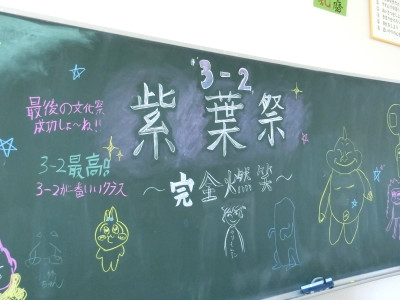 3-2
紫葉祭
最後の文化祭
成功しよ〜ね!!
3-2最高!!
3-2が一番いいクラス
〜完全燃焼〜